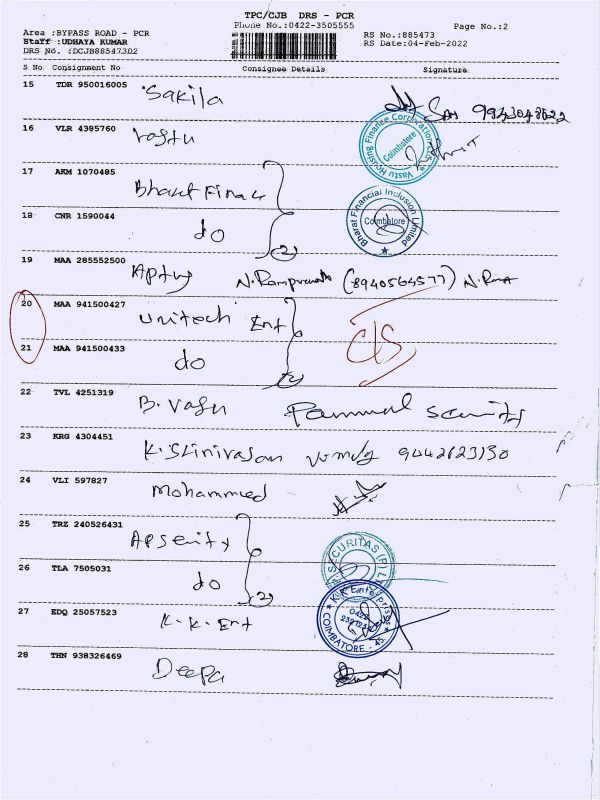 TPC/CJB DRS - PCR
Area :BYPASS ROAD - PCR Phone No.:0422-3505555 Page No.:2
Staff :UDHAYA KUMAR RS No.:885473
DRS No. :DCJB885473D2 RS Date:04-Feb-2022
S No. Consignment No Consignee Details Signature
15 TDR 950016005 Sakila
16 VLR 4385760 Vastu
Vastu Housing Finance Corporation
Coimbatore
17 AKM 1070485 Bharat Finan
18 CNR 1590044 do (2)
Bharat Financial Inclusion Limited
Coimbatore
19 MAA 285552500 (8940564577)
20 MAA 941500427 Unitech Ent
21 MAA 941500433 do (2)
22 TVL 4251319 B. Vasu
23 KRG 4304451 K. Srinivasan 9042623130
24 VLI 597827 Mohammed
25 TRZ 240526431
26 TLA 7505031 do (2)
SECURITAS (P)
27 EDQ 25057523 K.K. Ent
K.K Enterprises
COIMBATORE - 45.
28 THN 938326469 Deepa